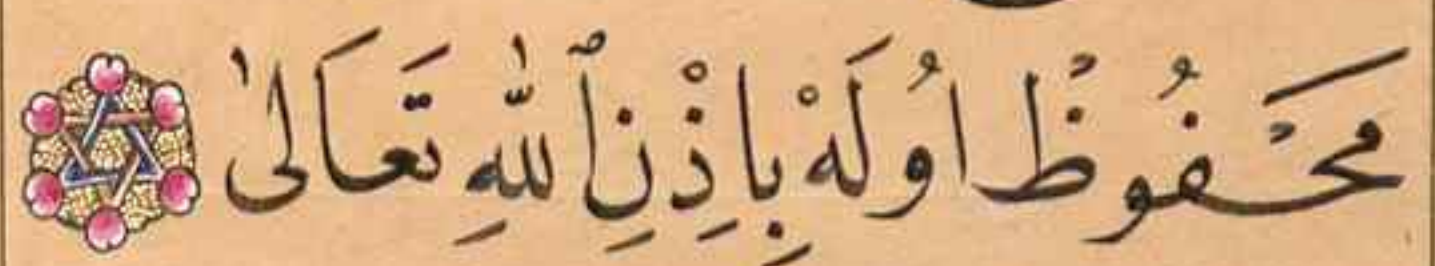 مَحْفُوظْ اُولَهْ بِاِذْنِ ٱللّٰهِ تَعَالىٰ